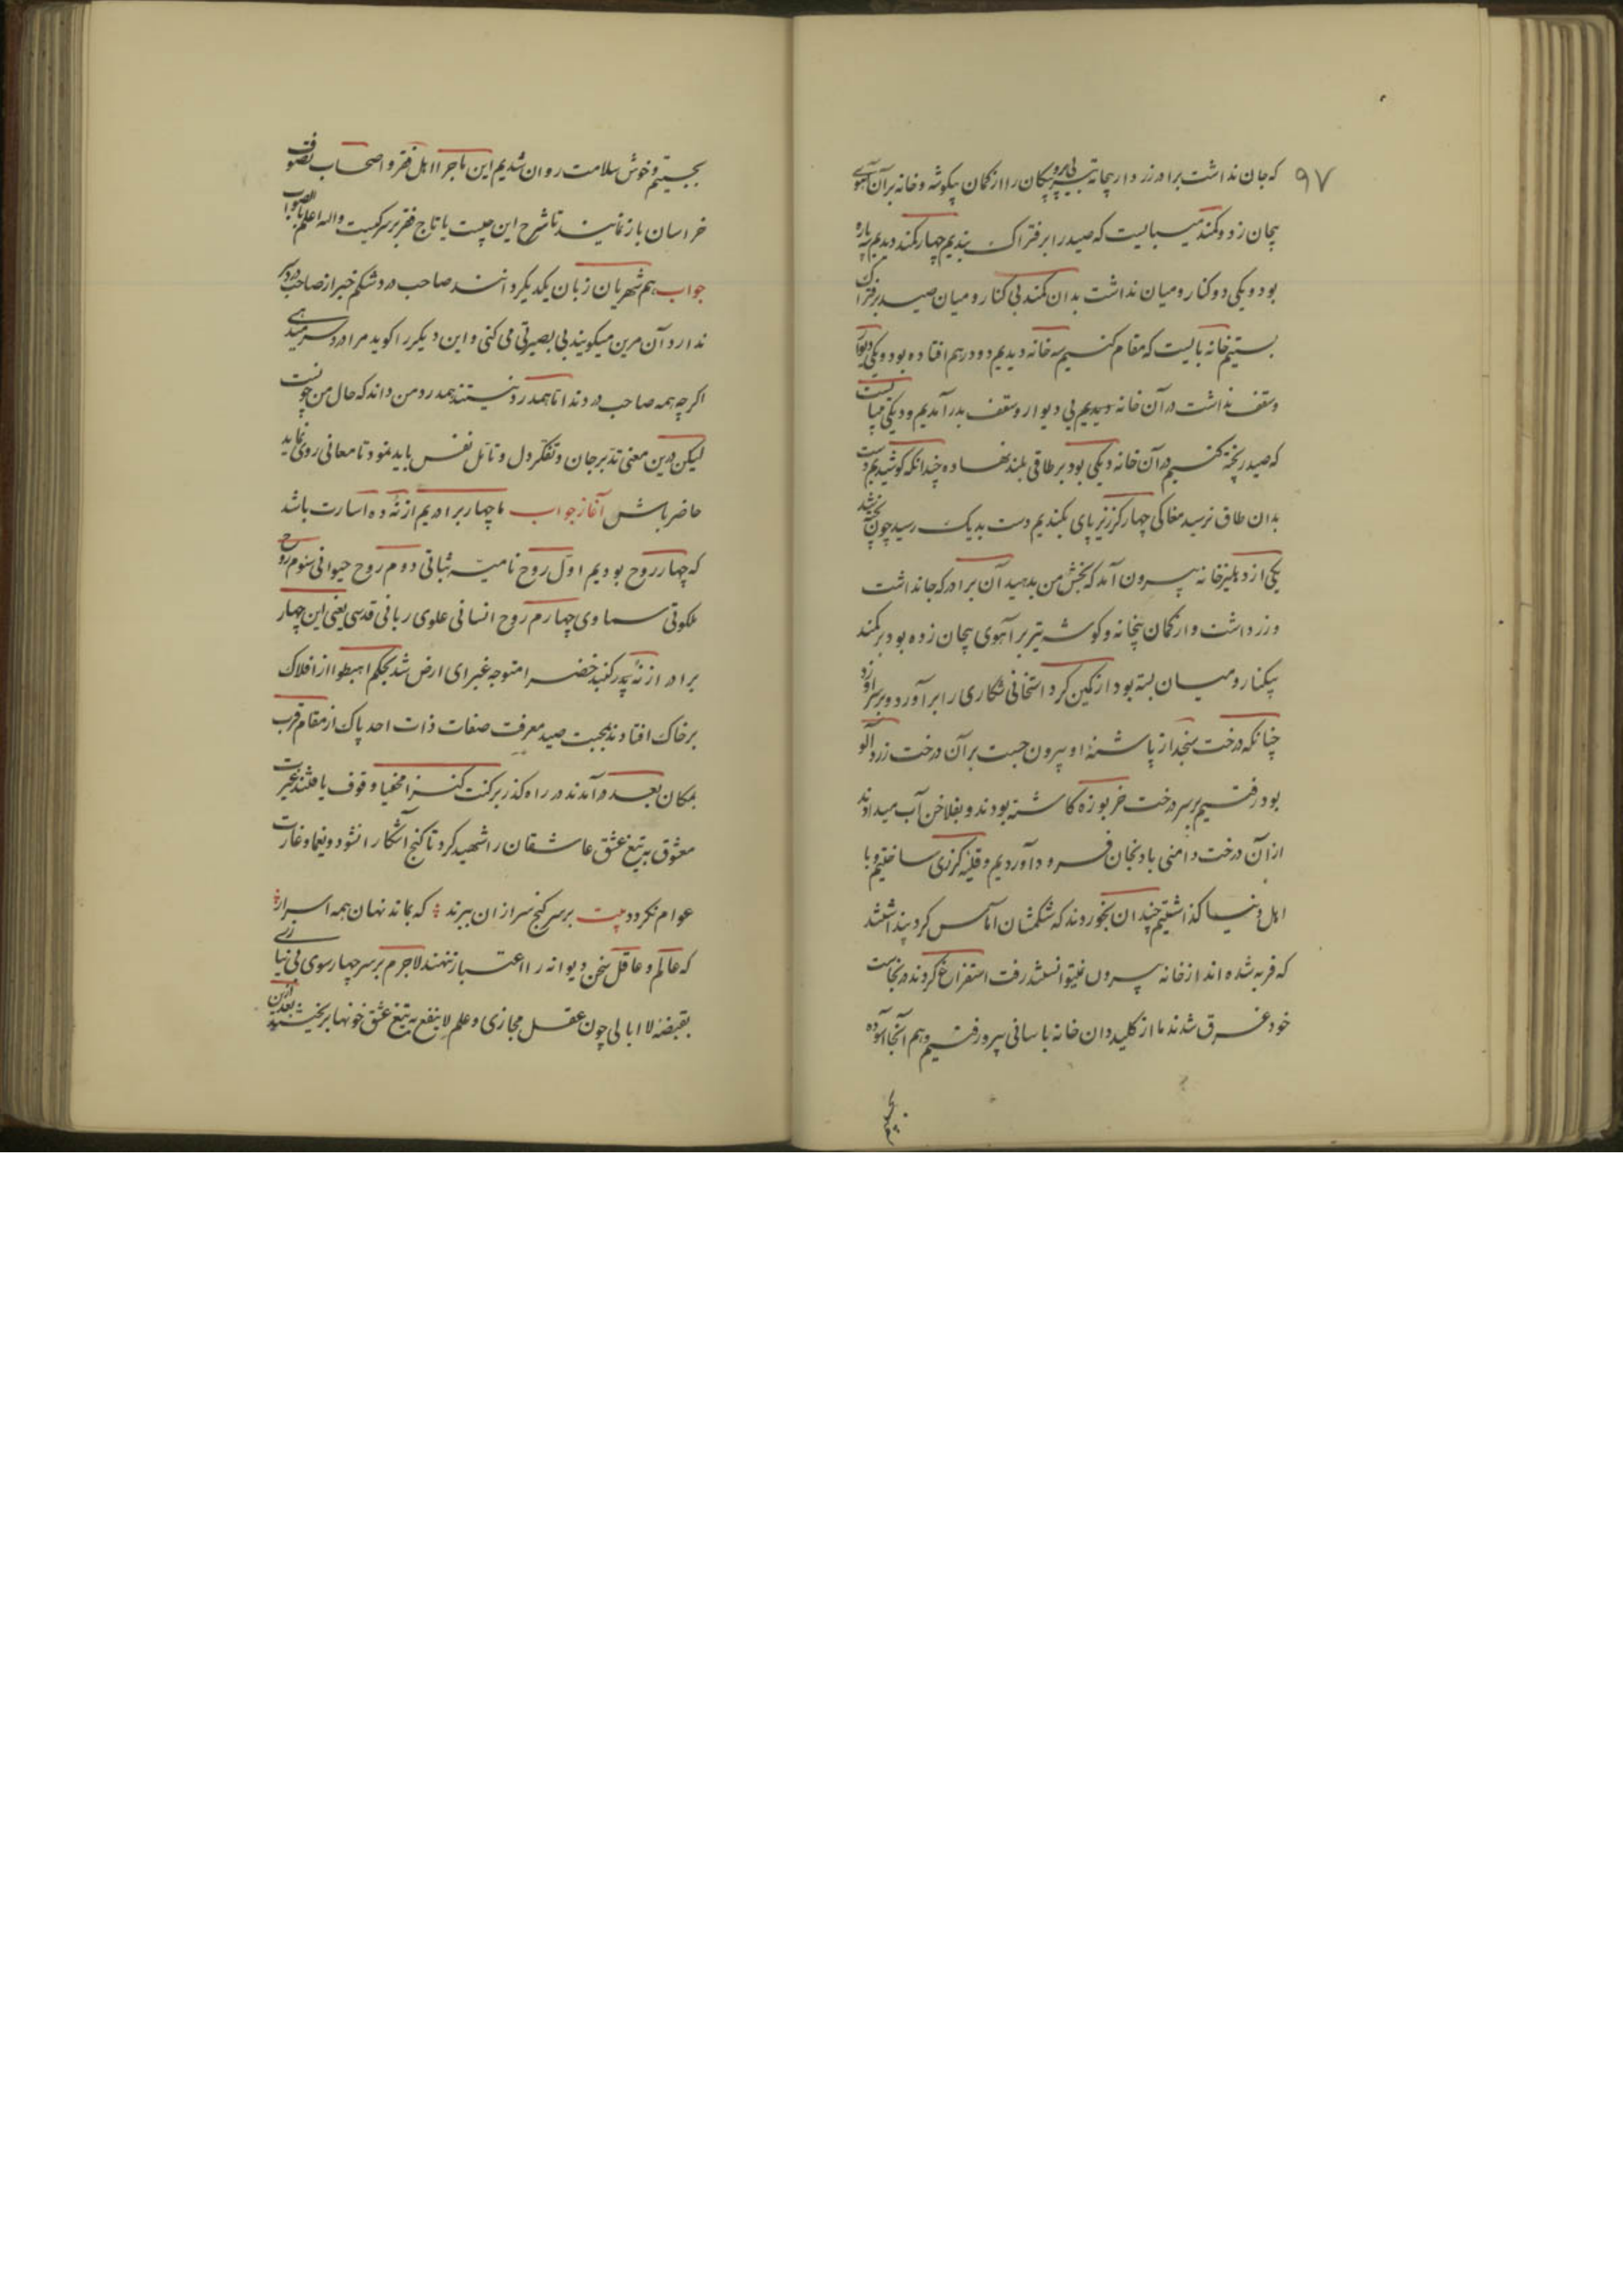 ۹۷
که جان نداشت برادر زردار بیجانه تیر بی پر و پیکان را از کمان بیگوشه و خانه بر آن آهوی
بیجان زد و کمند میبایست که صید را بر فتراک بندیم چهار کمند دیدیم سه پاره
بود و یکی دو کنار و میان نداشت بدان کمند بی کنار و میان صید بر فتراک
بستیم خانه بایست که مقام کنیم سه خانه دیدیم دو درهم افتاده بود و یکی دیوار
و سقف نداشت در آن خانه دیدیم بی دیوار و سقف بدر آمدیم و دیکی میبایست
که صید پخته کنیم در آن خانه دیکی بود بر طاقی بلند نهاده چندانکه کوشیدیم دست
بدان طاق نرسید مغاکی چهار کز زیر پای بکندیم دست بدیک رسید چون پخته شد
یکی از دهلیز خانه بیرون آمد که بخش من بدهید آن برادر که جان نداشت
و زر داشت و از کمان بیخانه و گوشه تیر بر آهوی بیجان زده بود بر کمند
بیکنار و میان بسته بود از کمین کرد استخانی شکاری را برآورد و بر سر او زد
چنانکه درخت سنجد از پاشنهٔ او بیرون جست بر آن درخت زردآلو
بود رفتیم بر سر درخت خربوزه کاشته بودند و بفلاخن آب میدادند
از آن درخت دامنی بادنجان فرود آوردیم و قلیه کزری ساختیم و با
اهل دنیا گذاشتیم چندان بخوردند که شکمشان اماس کرد پنداشتند
که فربه شده اند از خانه بیرون نمیتوانستند رفت استفراغ کردند در نجاست
خود غرق شدند ما از کلیدان خانه باسانی بیرون رفتیم و هم آنجا آسوده
بجستیم
بجستیم و خوش سلامت روان شدیم این ماجرا اهل فقر و اصحاب تصوف
خراسان باز نمایند تا شرح این چیست یا تاج فقر بر سر کیست والله اعلم بالصواب
جواب هم شهریان زبان یکدیگر دانند صاحب درد شکم خبر از صاحب درد سر
ندارد آن مرین میگویند بی بصیرتی می کنی و این دیگر را گوید مرا درد سر میدهی
اگر چه همه صاحب دردند اما همدرد نیستند همدرد من داند که حال من چونست
لیکن درین معنی تدبر جان و تفکر دل و تامل نفس باید نمود تا معانی روی نماید
حاضر باش آغاز جواب ما چهار برادریم از نه ده اسارت باشد
که چهار روح بودیم اول روح نامیه نباتی دوم روح حیوانی سوم روح
ملکوتی سماوی چهارم روح انسانی علوی ربانی قدسی یعنی این چهار
برادر از نه پدر گنبد خضرا متوجه غبرای ارض شد بحکم اهبطوا از افلاک
بر خاک افتادند بجبت صید معرفت صفات ذات احد پاک از مقام قرب
بمکان بعد در آمدند در راه گذر بر کنت کنزا مخفیا وقوف یافتند غیرت
معشوق به تیغ عشق عاشقان را شهید کرد تا گنج آشکارا نشود و یغما و غارت
عوام نگردد بیت بر سر گنج سر از ان ببرند که بماند نهان همه اسرار
که عالم و عاقل سخن دیوانه را اعتبار ننهند لاجرم بر سر چهار سوی بی نیازی
بقبضهٔ لا ابالی چون عقل مجازی و علم لا ینفع به تیغ عشق خونها بریختند بعد ازین